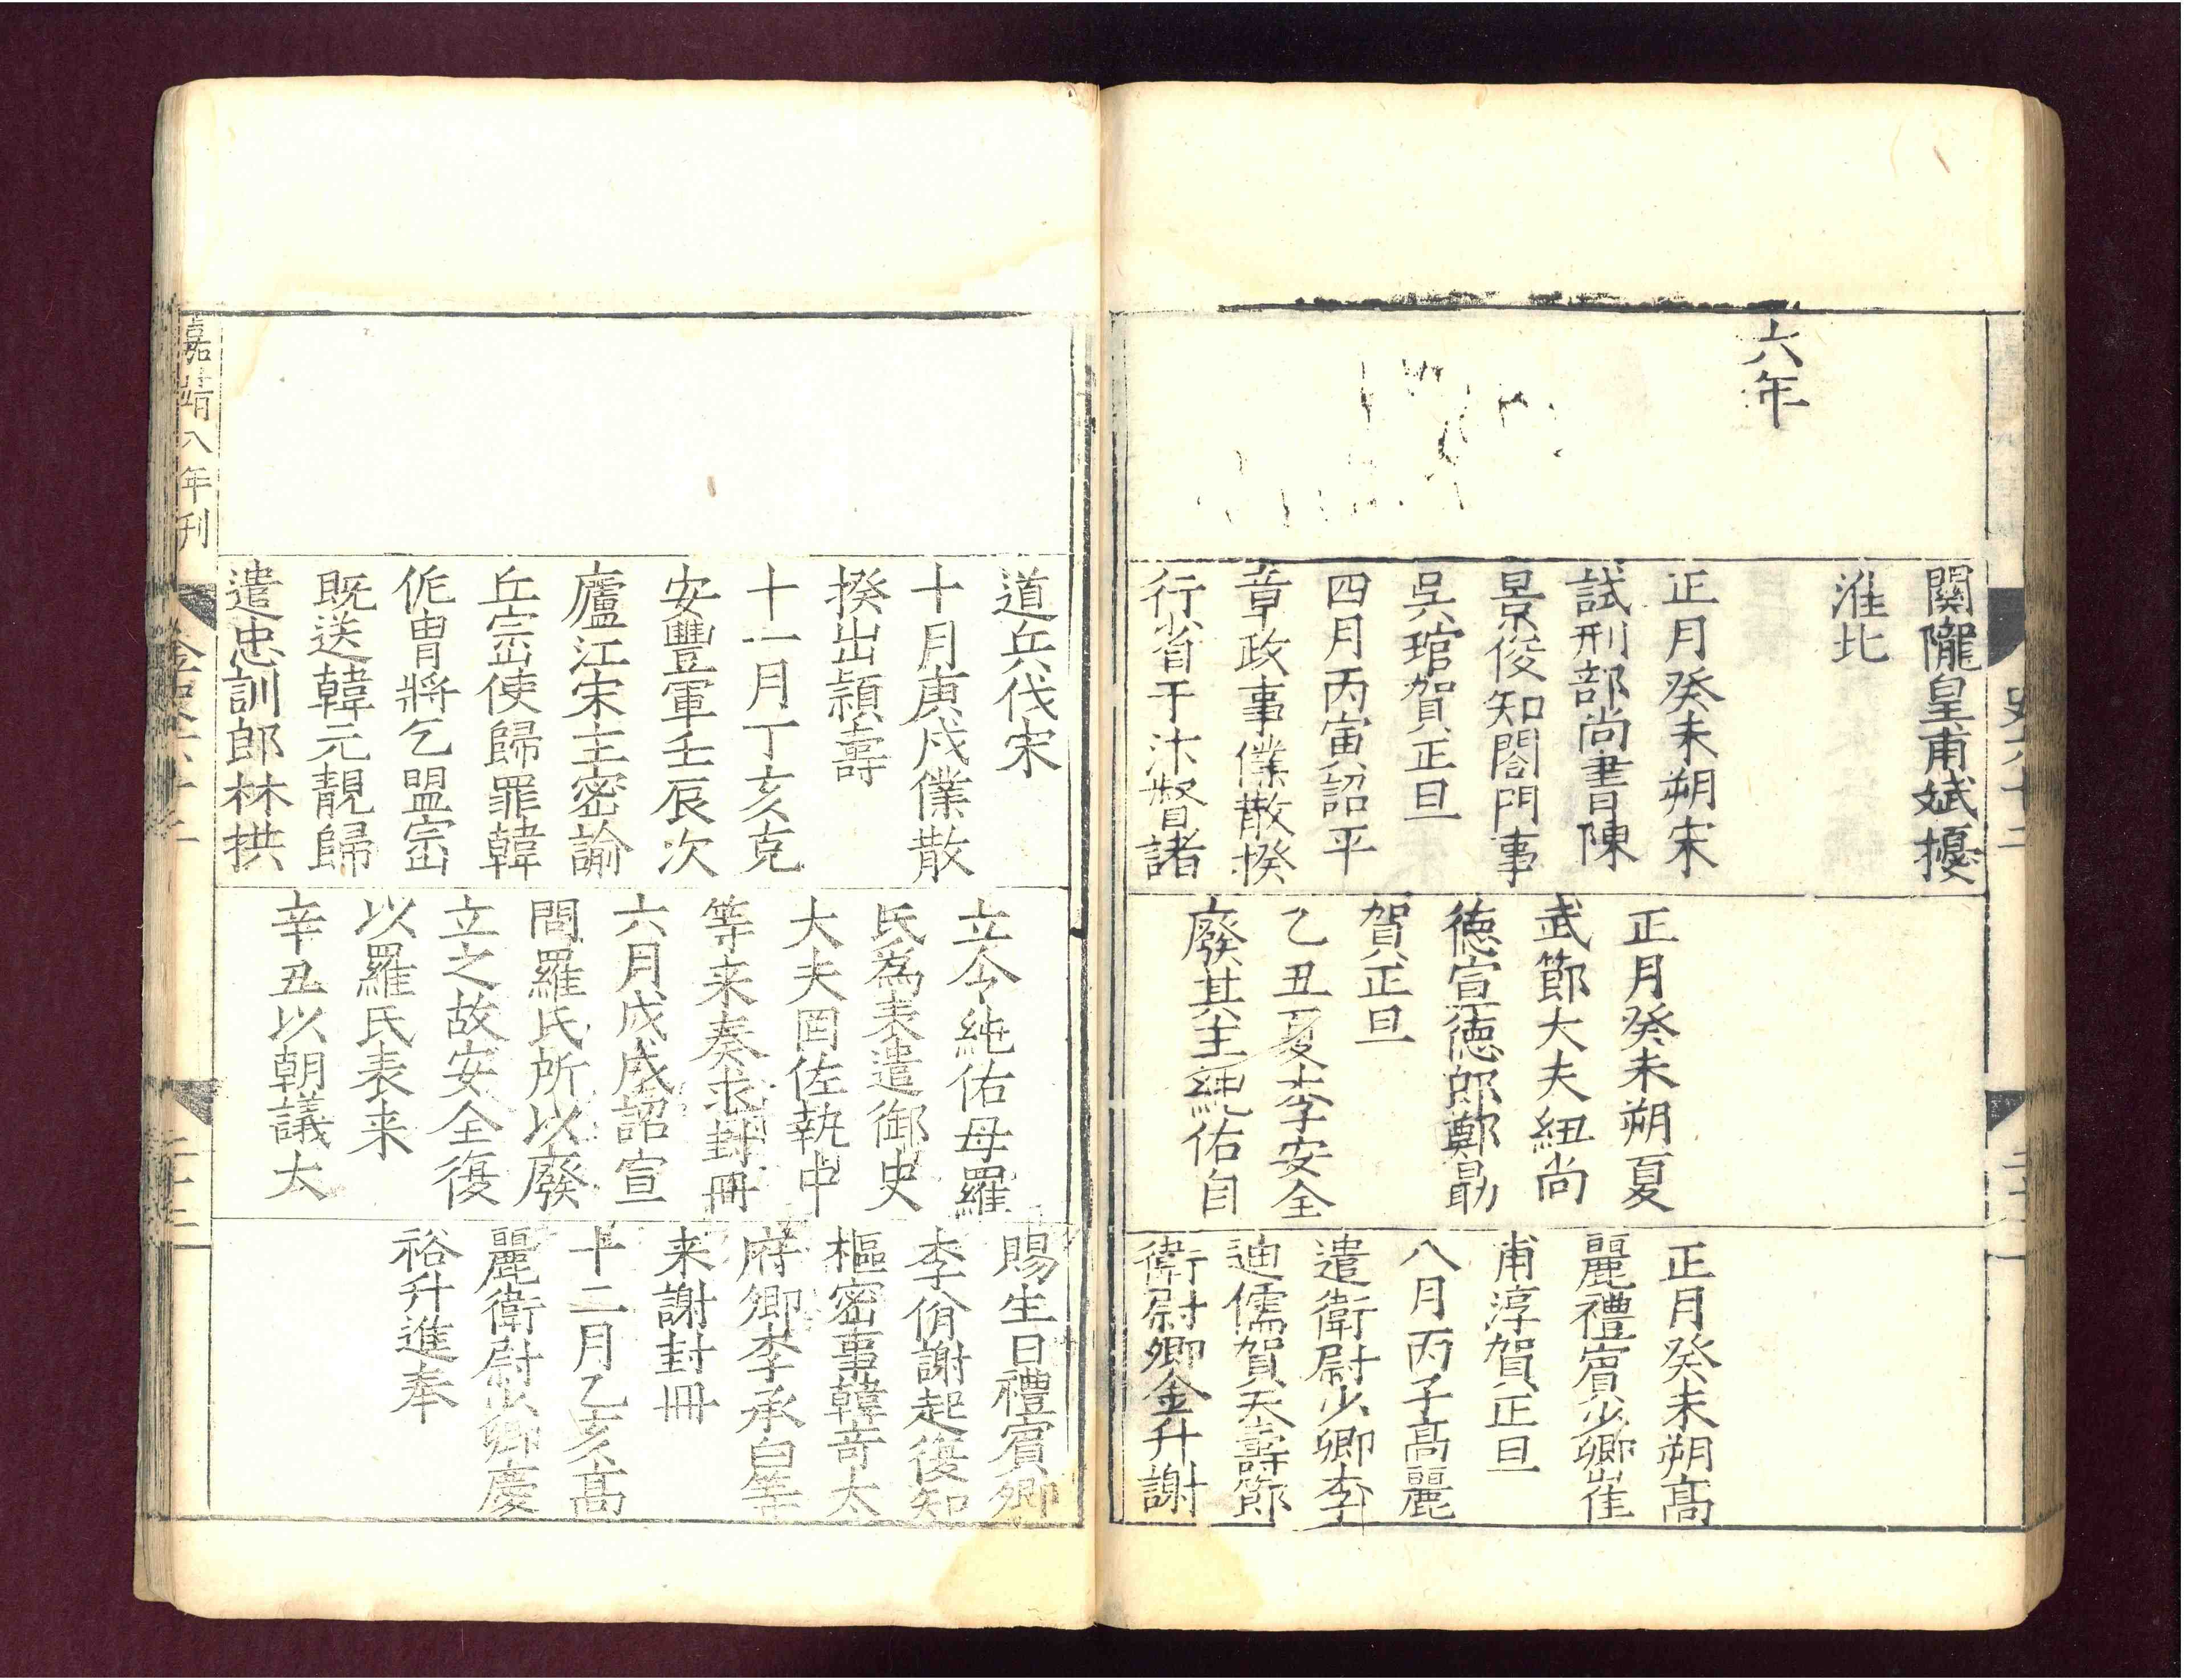 六年
關隴皇甫斌擾
淮北
正月癸未朔宋
試刑部尚書陳
景俊知閤門事
吳琯賀正旦
四月丙寅詔平
章政事僕散揆
行省于汴督諸
正月癸未朔夏
武節大夫紐尚
德宣德郎鄭勗
賀正旦
乙丑夏李安全
廢其主純佑自
正月癸未朔高
麗禮賓少卿崔
甫淳賀正旦
八月丙子高麗
遣衛尉少卿李
迪儒賀天壽節
衛尉卿金升謝
道兵伐宋
十月庚戍僕散
揆出潁壽
十一月丁亥克
安豐軍壬辰次
廬江宋主密諭
丘崈使歸罪韓
侂冑將乞盟崈
既送韓元靚歸
遣忠訓郎林拱
立令純佑母羅
氏為表遣御史
大夫罔佐執中
等来奏求封冊
六月戍戍詔宣
問羅氏所以廢
立之故安全復
以羅氏表来
辛丑以朝議大
賜生日禮賓卿
李脩謝起復知
樞密事韓奇太
府卿李承白等
来謝封冊
十二月乙亥高
麗衛尉少卿慶
裕升進奉
嘉靖八年刊
金史六十二
二十二